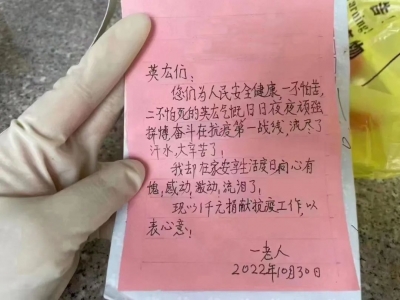 英左们：
您们为人民安全健康一不怕苦，
二不怕死的英左气慨，日日夜夜顽强
拼搏，奋斗在抗疫第一战线，流尽了
汗水，大辛苦了！
我却在家安享生活度日，问心有
愧，感动，激动，流泪了，
现以1千元捐献抗疫工作，以
表心意！
一老人
2022年10月30日